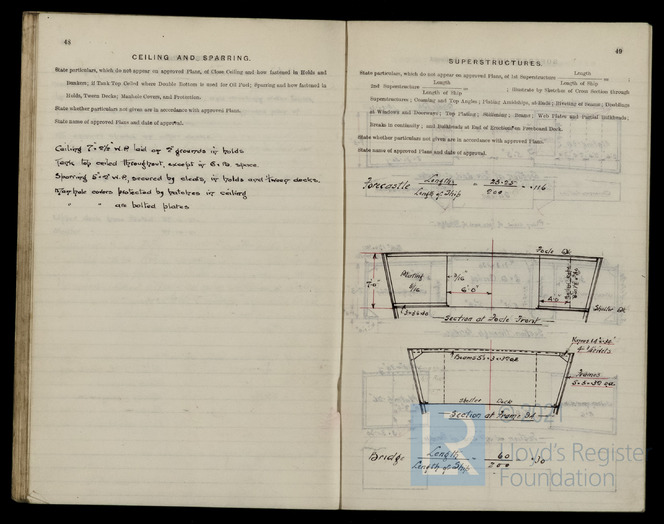 48
CEILING AND SPARRING.
State particulars, which do not appear on approved Plans, of Close Ceiling and how fastened in Holds and
Bunkers; if Tank Top Ceiled where Double Bottom is used for Oil Fuel; Sparring and how fastened in
Holds, Tween Decks; Manhole Covers, and Protection.
State whether particulars not given are in accordance with approved Plans.
State name of approved Plans and date of approval.
Ceiling 7" 2½" W.P. laid on 2" grounds in holds
Tank top ceiled throughout, except in space
Sparring 6" 2" W.P, secured by cleats, in holds and tween decks.
Manhole covers protected by hatches in ceiling
" " as bolted plates
49
SUPERSTRUCTURES.
State particulars, which do not appear on approved Plans, of 1st Superstructure Length / Length of Ship =
2nd Superstructure Length / Length of Ship = ; Illustrate by Sketches of Cross Section through
Superstructures; Coaming and Top Angles; Plating Amidships, at Ends; Riveting of Seams; Doublings
at Windows and Doorways; Top Plating; Stiffening; Beams; Web Plates and Partial Bulkheads;
Breaks in continuity; and Bulkheads at End of Erections on Freeboard Deck.
State whether particulars not given are in accordance with approved Plans.
State name of approved Plans and date of approval.
Forecastle Length / Length of Ship = 23.25 / 200 = .116
Focle Dk.
Plating
6'0"
4'0"
Shelter Dk
Section at Focle Front
Beams
Frames
Shelter Deck
Section at Frame
Bridge Length / Length of Ship = 60 / 200 = .30
© 2021
LR
Lloyd's Register
Foundation